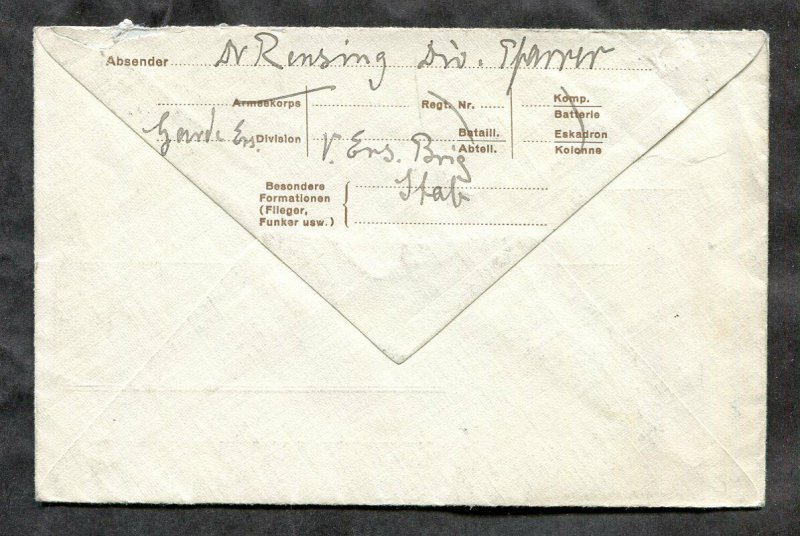 Absender Dr Rensing Div. Pfarrer
Armeekorps Regt. Nr. Komp.
Batterie
Garde Ers. Division V. Ers. Brig Bataill. Eskadron
Abteil. Kolonne
Besondere Stab
Formationen
(Flieger,
Funker usw.)